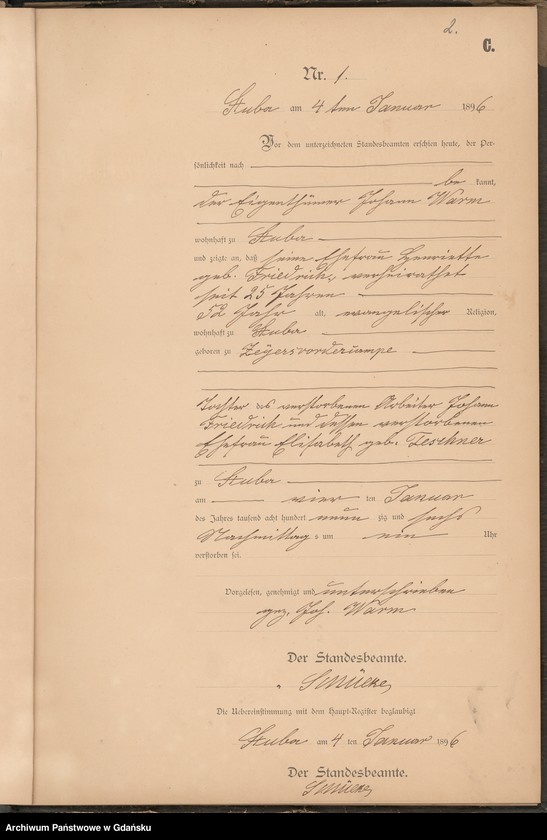 2.
C.
Nr. 1.
Stuba am 4 ten Januar 1896
Vor dem unterzeichneten Standesbeamten erschien heute, der Per-
sönlichkeit nach
be kannt,
der Eigenthümer Johann Warm
wohnhaft zu Stuba
und zeigte an, daß seine Ehefrau Henriette
geb. Friedrich, verheirathet
seit 25 Jahren
52 Jahr alt, evangelischer Religion,
wohnhaft zu Stuba
geboren zu Zeyersvorderkampe
Tochter des verstorbenen Arbeiter Johann
Friedrich und dessen verstorbenen
Ehefrau Elisabeth geb. Teschner
zu Stuba
am vier ten Januar
des Jahres tausend acht hundert neun zig und sechs
Nachmittag s um ein Uhr
verstorben sei.
Vorgelesen, genehmigt und unterschrieben
gez. Joh. Warm
Der Standesbeamte.
Die Uebereinstimmung mit dem Haupt-Register beglaubigt
Stuba am 4 ten Januar 1896
Der Standesbeamte.
Archiwum Państwowe w Gdańsku